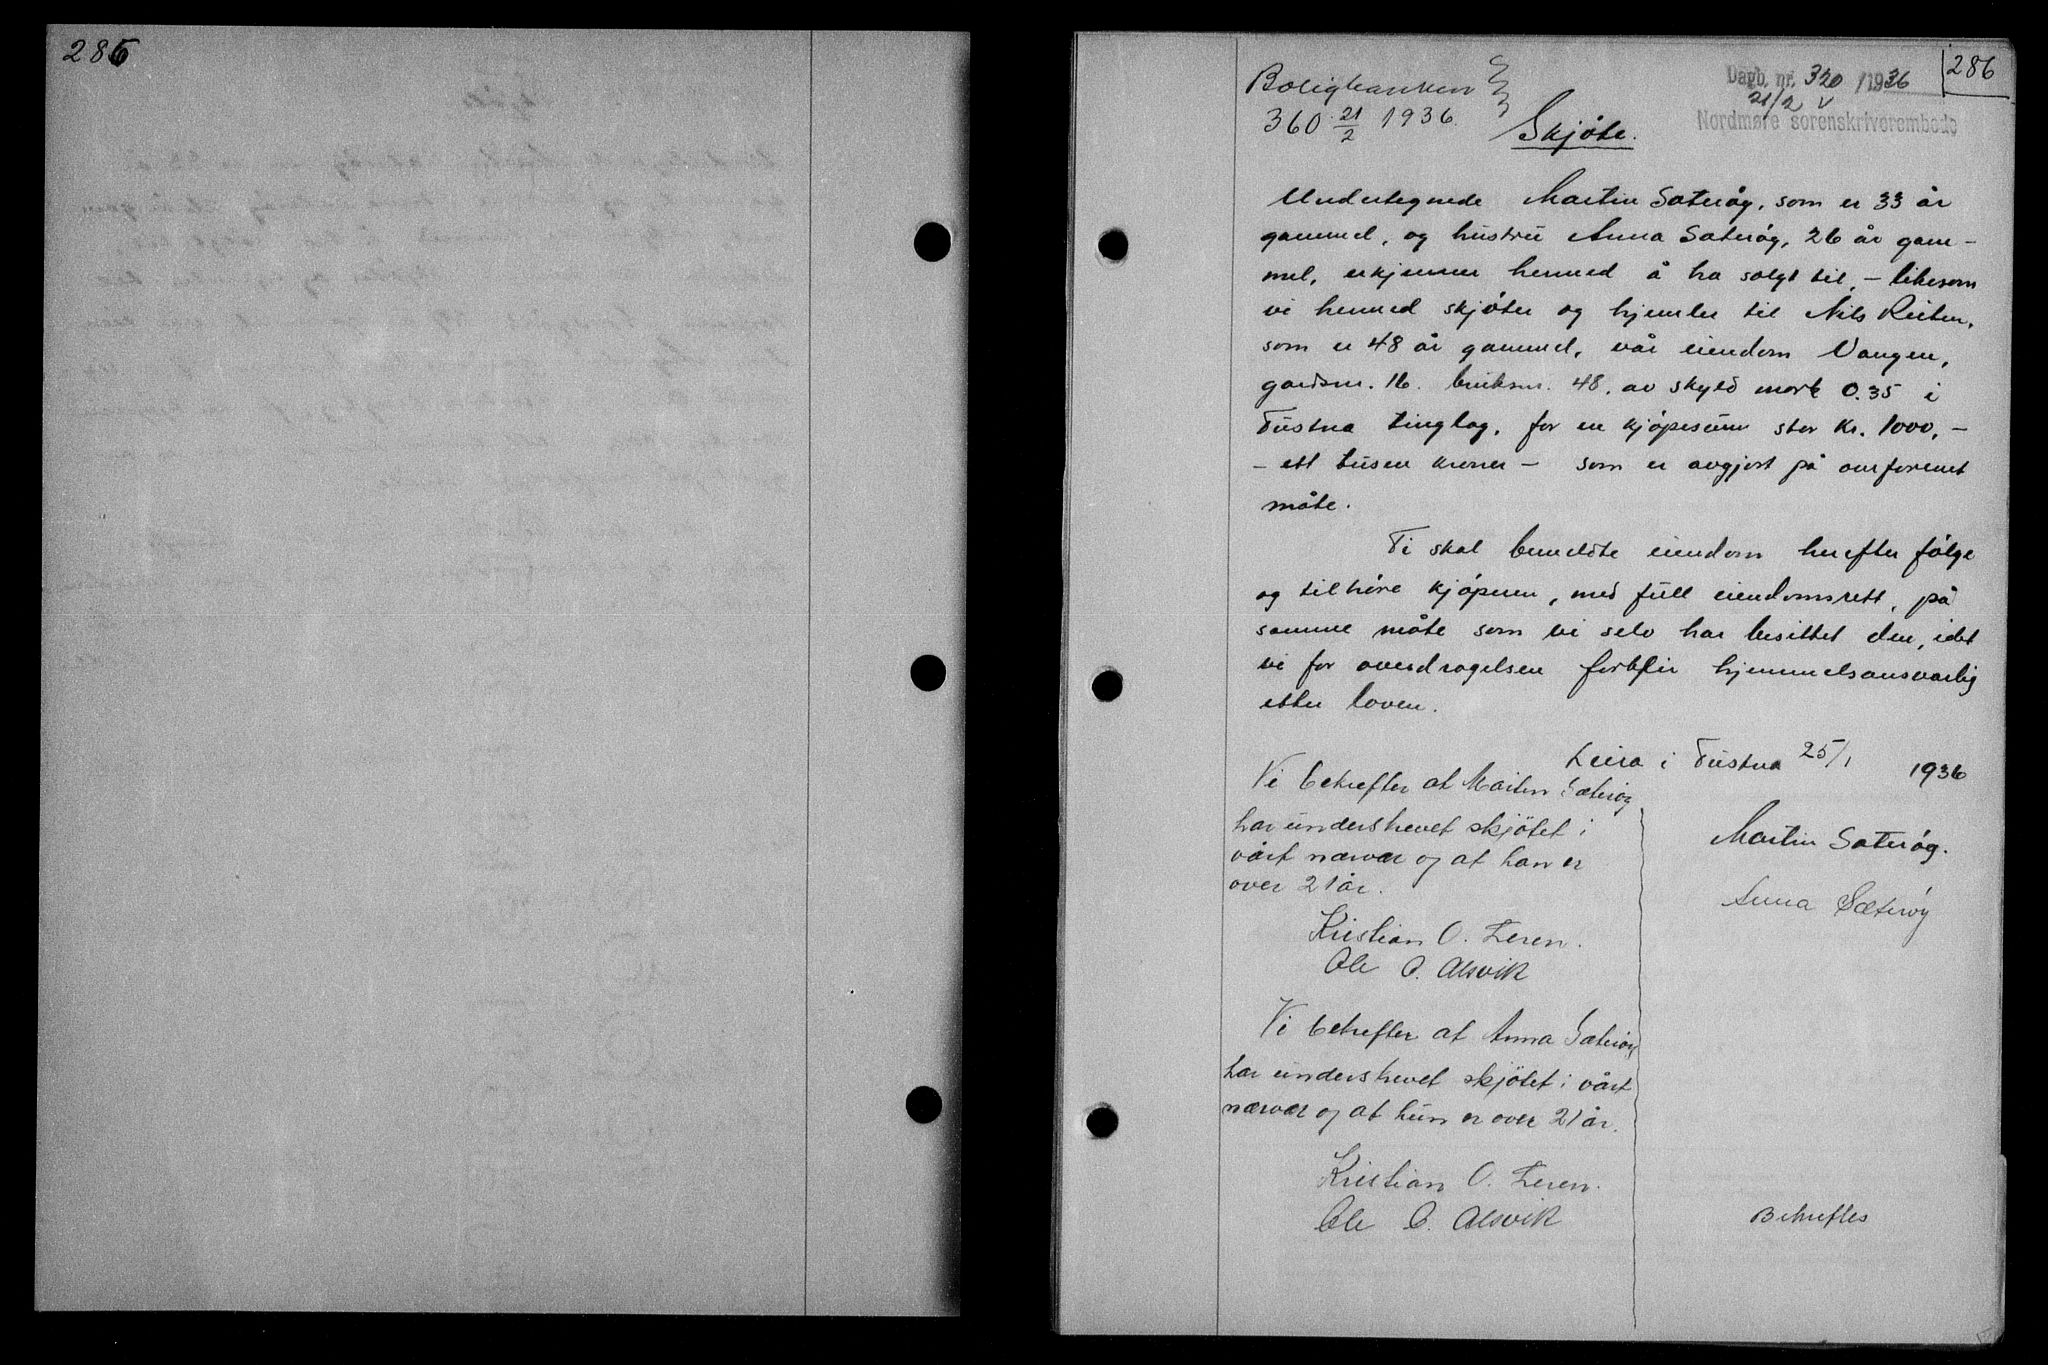 286
286
Dagb. nr. 320 /1936
21/2 v
Nordmøre sorenskriverembede
Boligbanken
360. 21/2 1936.
Skjøte.
Undertegnede Martin Sæterøy, som er 33 år
gammel, og hustru Anna Sæterøy, 26 år gam-
mel, erkjenner hermed å ha solgt til, - likesom
vi hermed skjøter og hjemler til Nils Reiten,
som er 48 år gammel, vår eiendom Vangen,
gardsnr. 16. bruksnr. 48. av skyld mark 0.35 i
Tustna tinglag, for en kjøpesum stor Kr. 1000,-
- ett tusen kroner - som er avgjort på omforenet
måte.
Ti skal bemeldte eiendom herefter følge
og tilhøre kjøperen, med full eiendomsrett, på
samme måte som vi selv har besittet den, idet
vi for overdragelsen forblir hjemmelsansvarlig
etter loven.
Leira i Tustna 25/1 1936
Martin Sæterøy.
Anna Sæterøy
Vi betrefter at Martin Sæterøy
har underskrevet skjøtet i
vårt nærvær og at han er
over 21 år.
Kristian O. Leren.
Ole O. Alsvik
Vi betrefter at Anna Sæterøy
har underskrevet skjøtet i vårt
nærvær og at hun er over 21 år.
Kristian O. Leren.
Ole O. Alsvik
Bekreftes